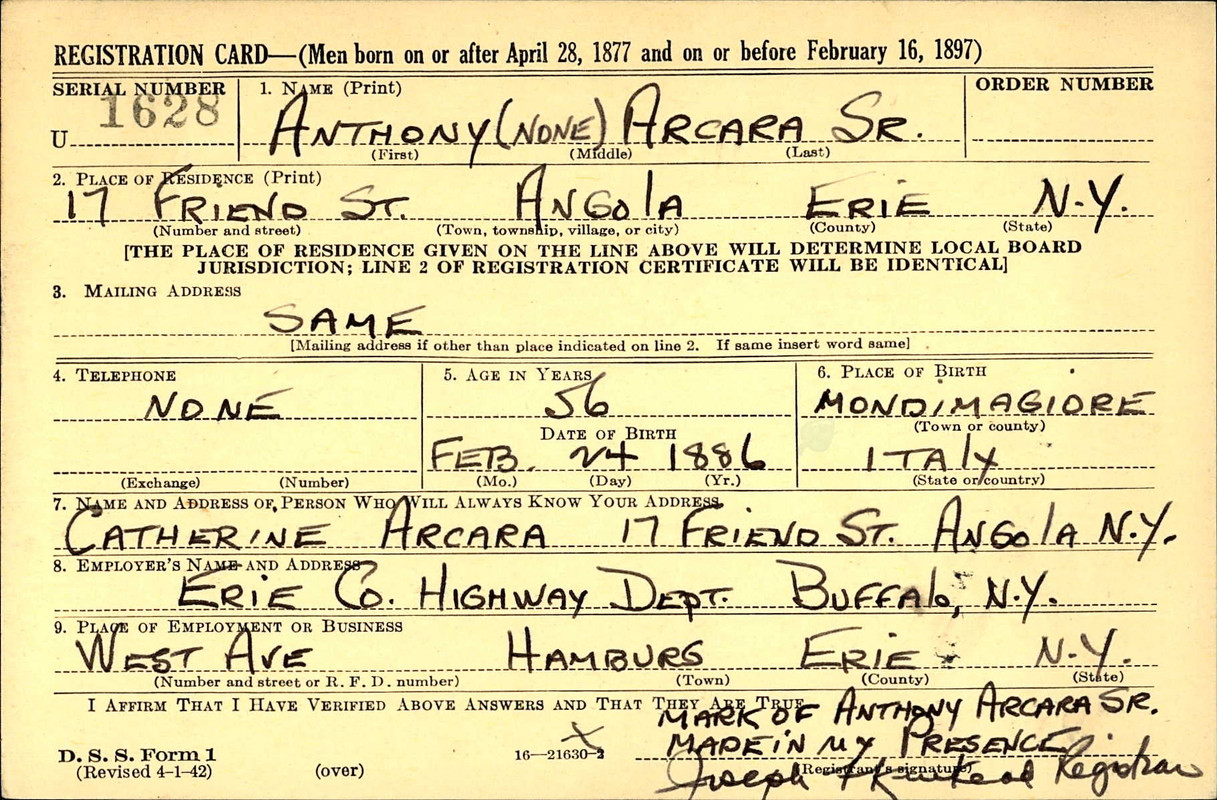 REGISTRATION CARD—(Men born on or after April 28, 1877 and on or before February 16, 1897)
SERIAL NUMBER 1. NAME (Print) ORDER NUMBER
U 1628 ANTHONY (NONE) ARCARA SR.
(First) (Middle) (Last)
2. PLACE OF RESIDENCE (Print)
17 FRIEND ST. ANGOLA ERIE N.Y.
(Number and street) (Town, township, village, or city) (County) (State)
[THE PLACE OF RESIDENCE GIVEN ON THE LINE ABOVE WILL DETERMINE LOCAL BOARD
JURISDICTION; LINE 2 OF REGISTRATION CERTIFICATE WILL BE IDENTICAL]
3. MAILING ADDRESS
SAME
[Mailing address if other than place indicated on line 2. If same insert word same]
4. TELEPHONE 5. AGE IN YEARS 6. PLACE OF BIRTH
NONE 56 MONDIMAGIORE
DATE OF BIRTH (Town or county)
FEB. 24 1886 ITALY
(Exchange) (Number) (Mo.) (Day) (Yr.) (State or country)
7. NAME AND ADDRESS OF PERSON WHO WILL ALWAYS KNOW YOUR ADDRESS
CATHERINE ARCARA 17 FRIEND ST. ANGOLA N.Y.
8. EMPLOYER'S NAME AND ADDRESS
ERIE CO. HIGHWAY DEPT. BUFFALO, N.Y.
9. PLACE OF EMPLOYMENT OR BUSINESS
WEST AVE HAMBURG ERIE N.Y.
(Number and street or R. F. D. number) (Town) (County) (State)
I AFFIRM THAT I HAVE VERIFIED ABOVE ANSWERS AND THAT THEY ARE TRUE.
MARK OF ANTHONY ARCARA SR.
X MADE IN MY PRESENCE
D. S. S. Form 1 16—21630-2
(Revised 4-1-42) (over) (Registrant's signature)
Joseph Registrar